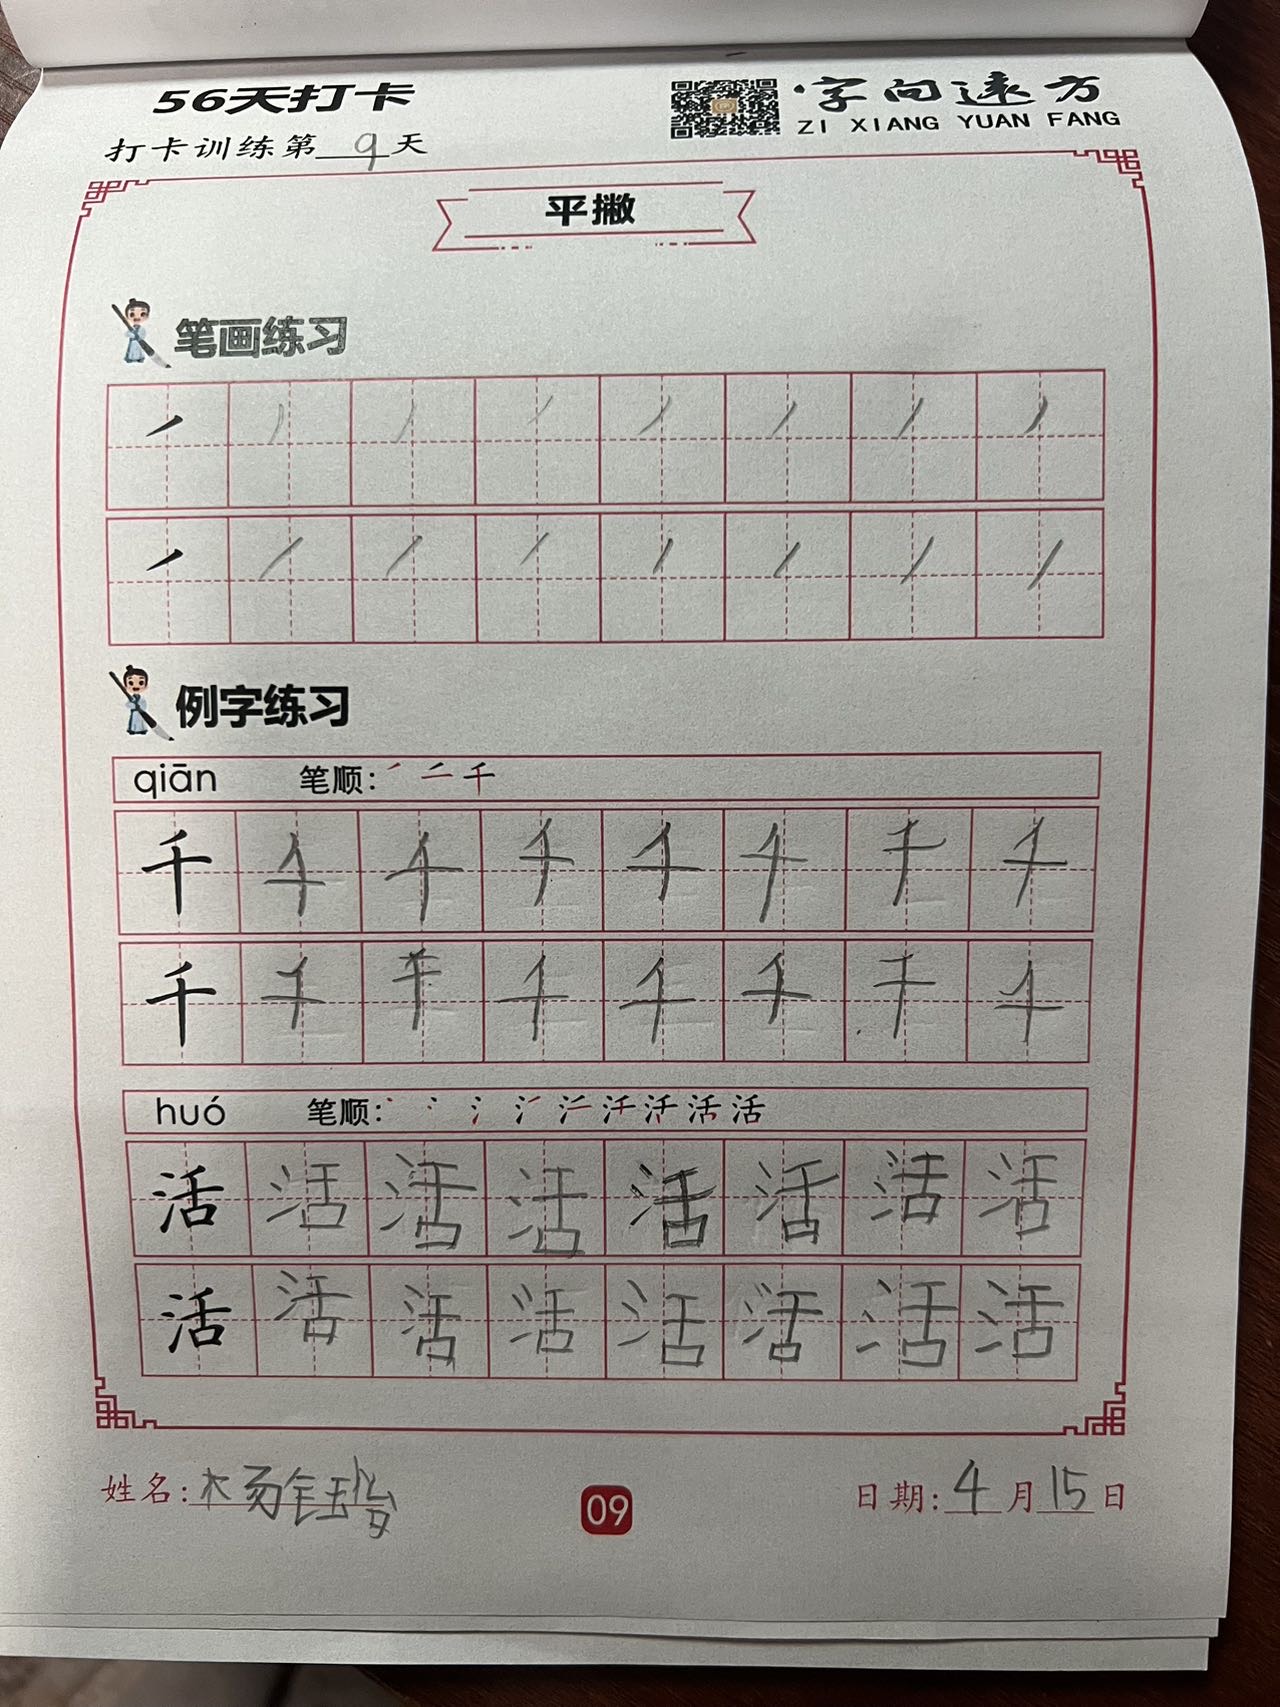 56天打卡
字向远方
ZI XIANG YUAN FANG
打卡训练第9天
平撇
笔画练习
例字练习
qiān 笔顺:千
千千千千千千千千
千千千千千千千千
huó 笔顺:活
活活活活活活活活
活活活活活活活活
姓名:杨
09
日期:4月15日